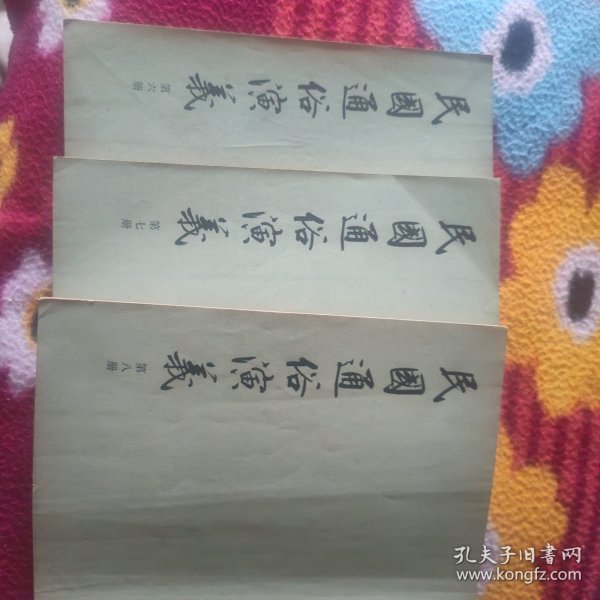 民國通俗演義
第六册
民國通俗演義
第七册
民國通俗演義
第八册
孔夫子旧書网
www.kongfz.com